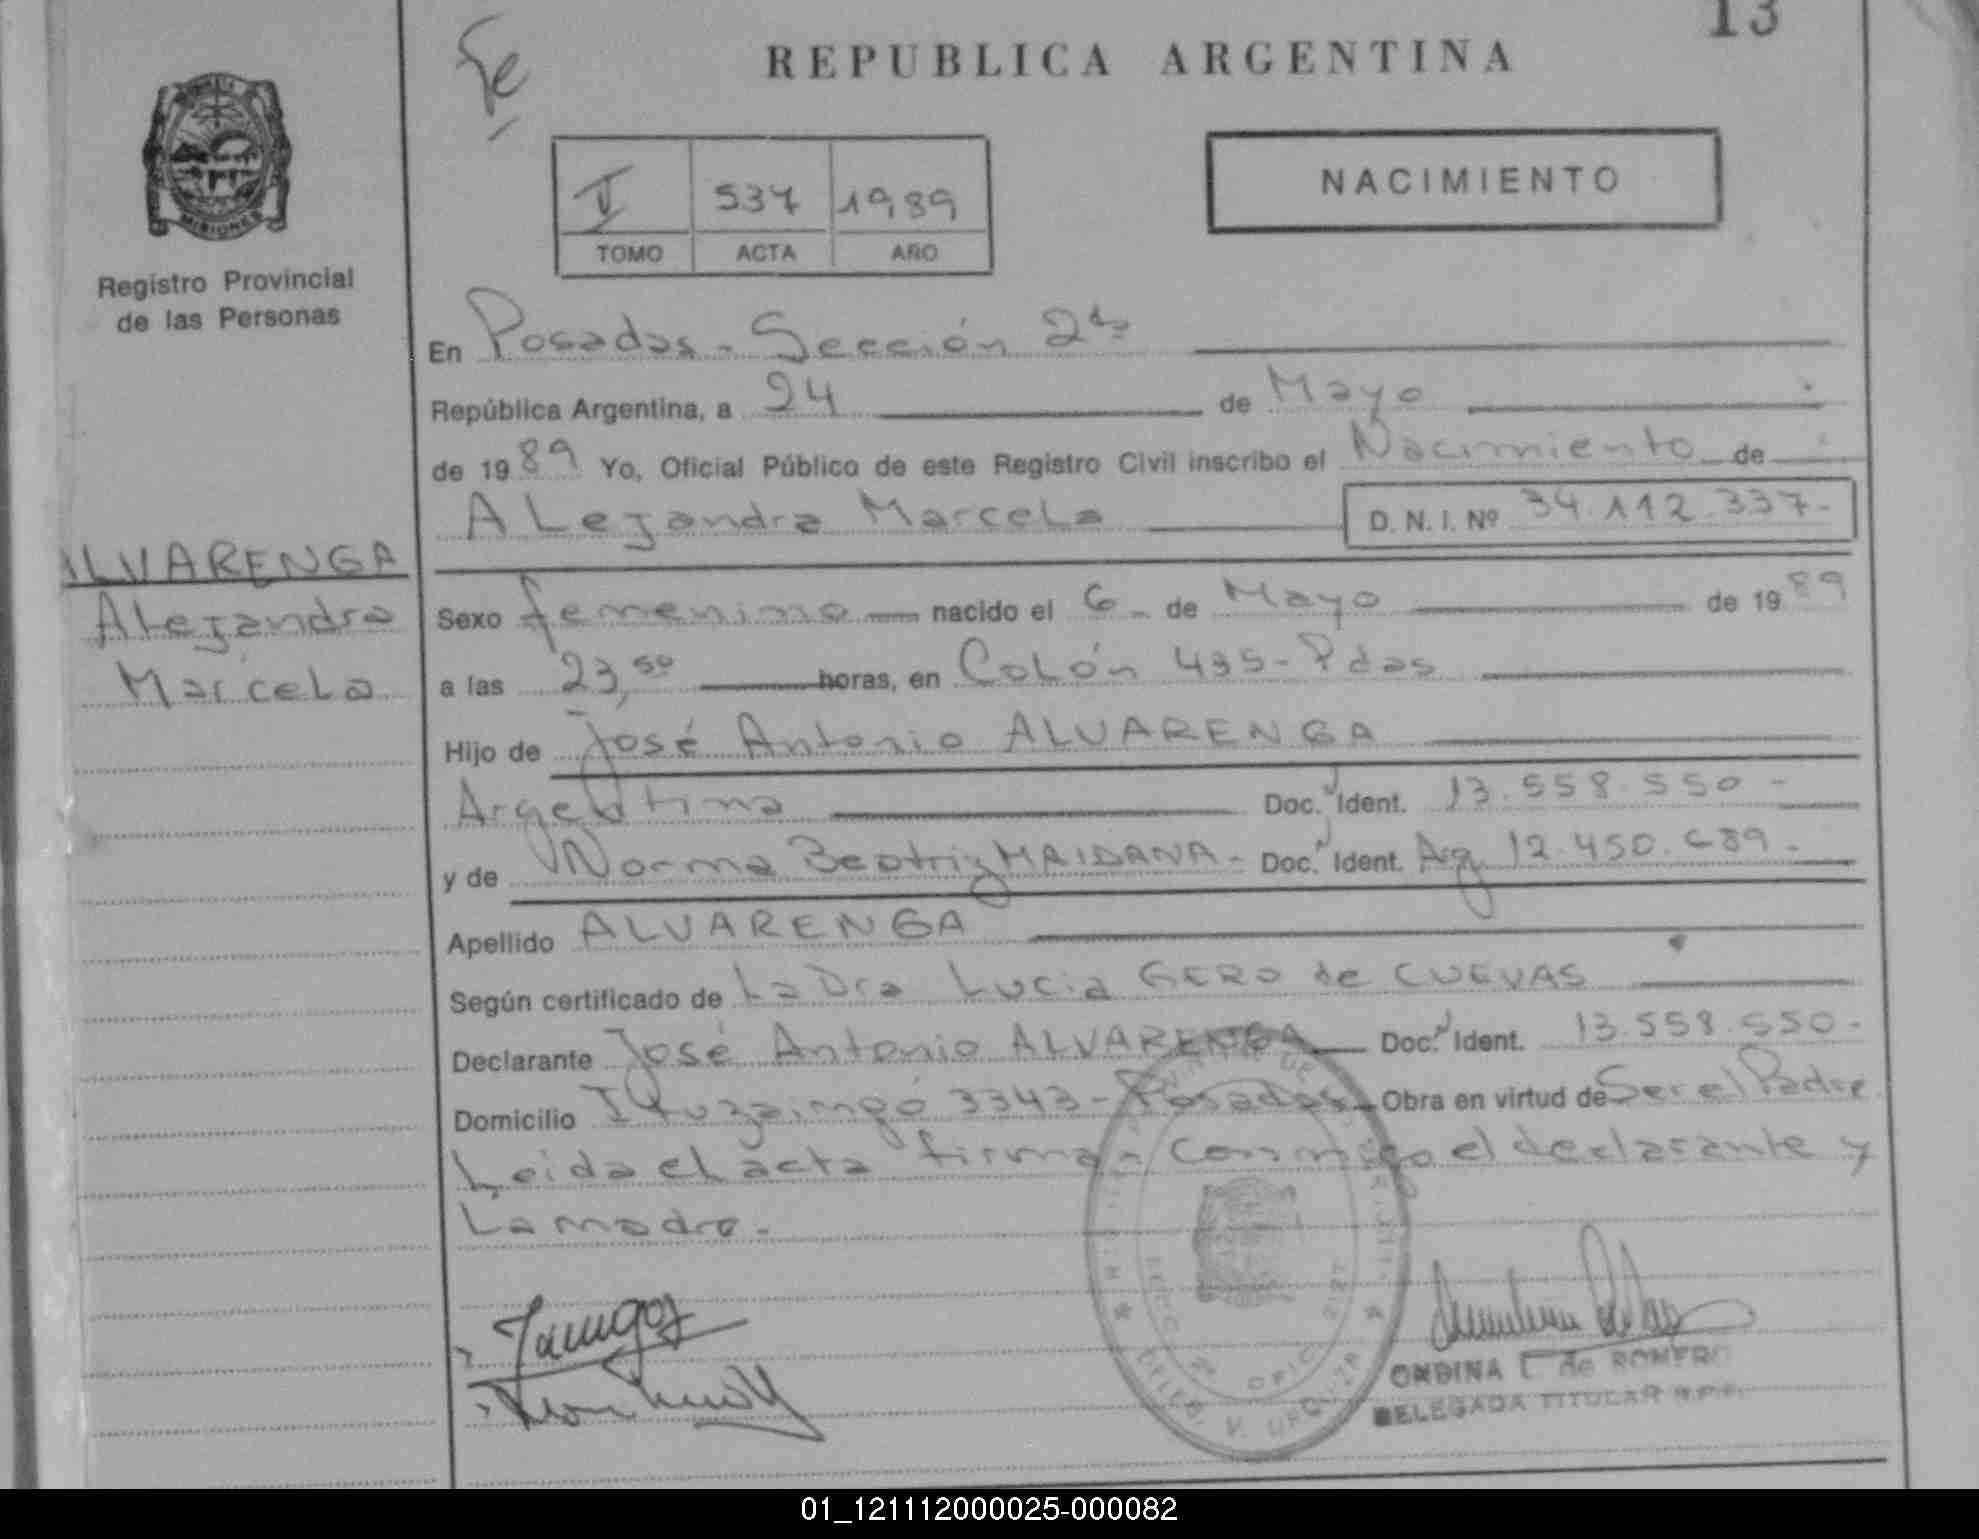 13
REPUBLICA ARGENTINA
MISIONES
Registro Provincial
de las Personas
537 1989
TOMO ACTA AÑO
NACIMIENTO
En Posadas - Sección 2da
República Argentina, a 24 de Mayo
de 1989 Yo, Oficial Público de este Registro Civil inscribo el Nacimiento de
Alejandra Marcela D. N. I. Nº 34.112.337-
ALVARENGA
Alejandra
Marcela
Sexo femenino nacido el 6 - de Mayo de 1989
a las 23,50 horas, en Colón 435 - Pdas
Hijo de José Antonio ALVARENGA
Argentina Doc. Ident. 13.558.550-
y de Norma Beatriz MAIDANA - Doc. Ident. Arg. 12.450.689-
Apellido ALVARENGA
Según certificado de La Dra Lucia GERO de CUEVAS
Declarante José Antonio ALVARENGA Doc. Ident. 13.558.550-
Domicilio Ituzaingó 3343 - Posadas Obra en virtud de Ser el Padre
Leida el acta firman conmigo el declarante y
La madre.
ONDINA de ROMERO
DELEGADA TITULAR R.P.P.
01_121112000025-000082